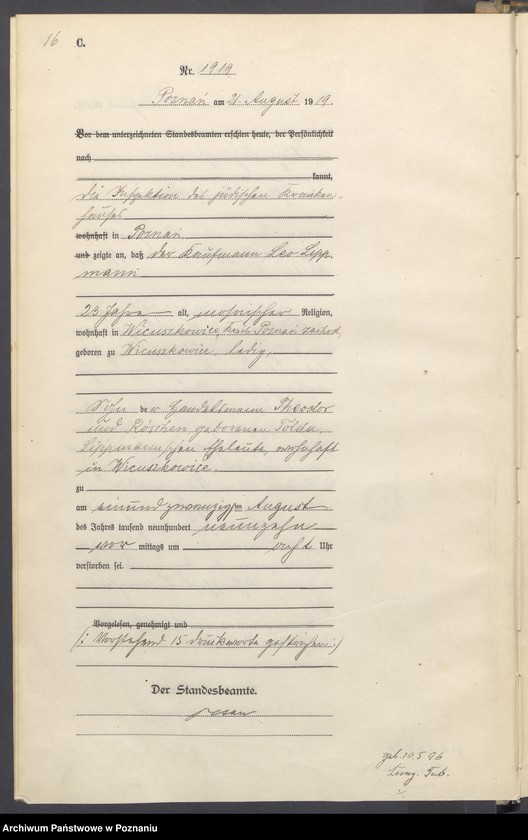 16 C.
Nr. 1919
Poznań am 21. August 1919.
Vor dem unterzeichneten Standesbeamten erschien heute, der Persönlichkeit
nach
kannt,
die Inspektion des jüdischen Kranken-
hauses
wohnhaft in Poznań
und zeigte an, daß der Kaufmann Leo Lipp
mann
23 Jahre alt, mosaischer Religion,
wohnhaft in Wieruszkowice, Poznań zachod,
geboren zu Wieruszkowice, ledig,
Sohn der Handelsmann Theodor
und Röschen geborenen Tolda,
Lippmann'schen Eheleute, wohnhaft
in Wieruszkowice.
zu
am einundzwanzigsten August
des Jahres tausend neunhundert neunzehn
vor mittags um acht Uhr
verstorben sei.
Vorgelesen, genehmigt und
(: Vorstehend 15 Druckworte gestrichen :)
Der Standesbeamte.
geb. 10.5.96
Lung. Tub.
Archiwum Państwowe w Poznaniu